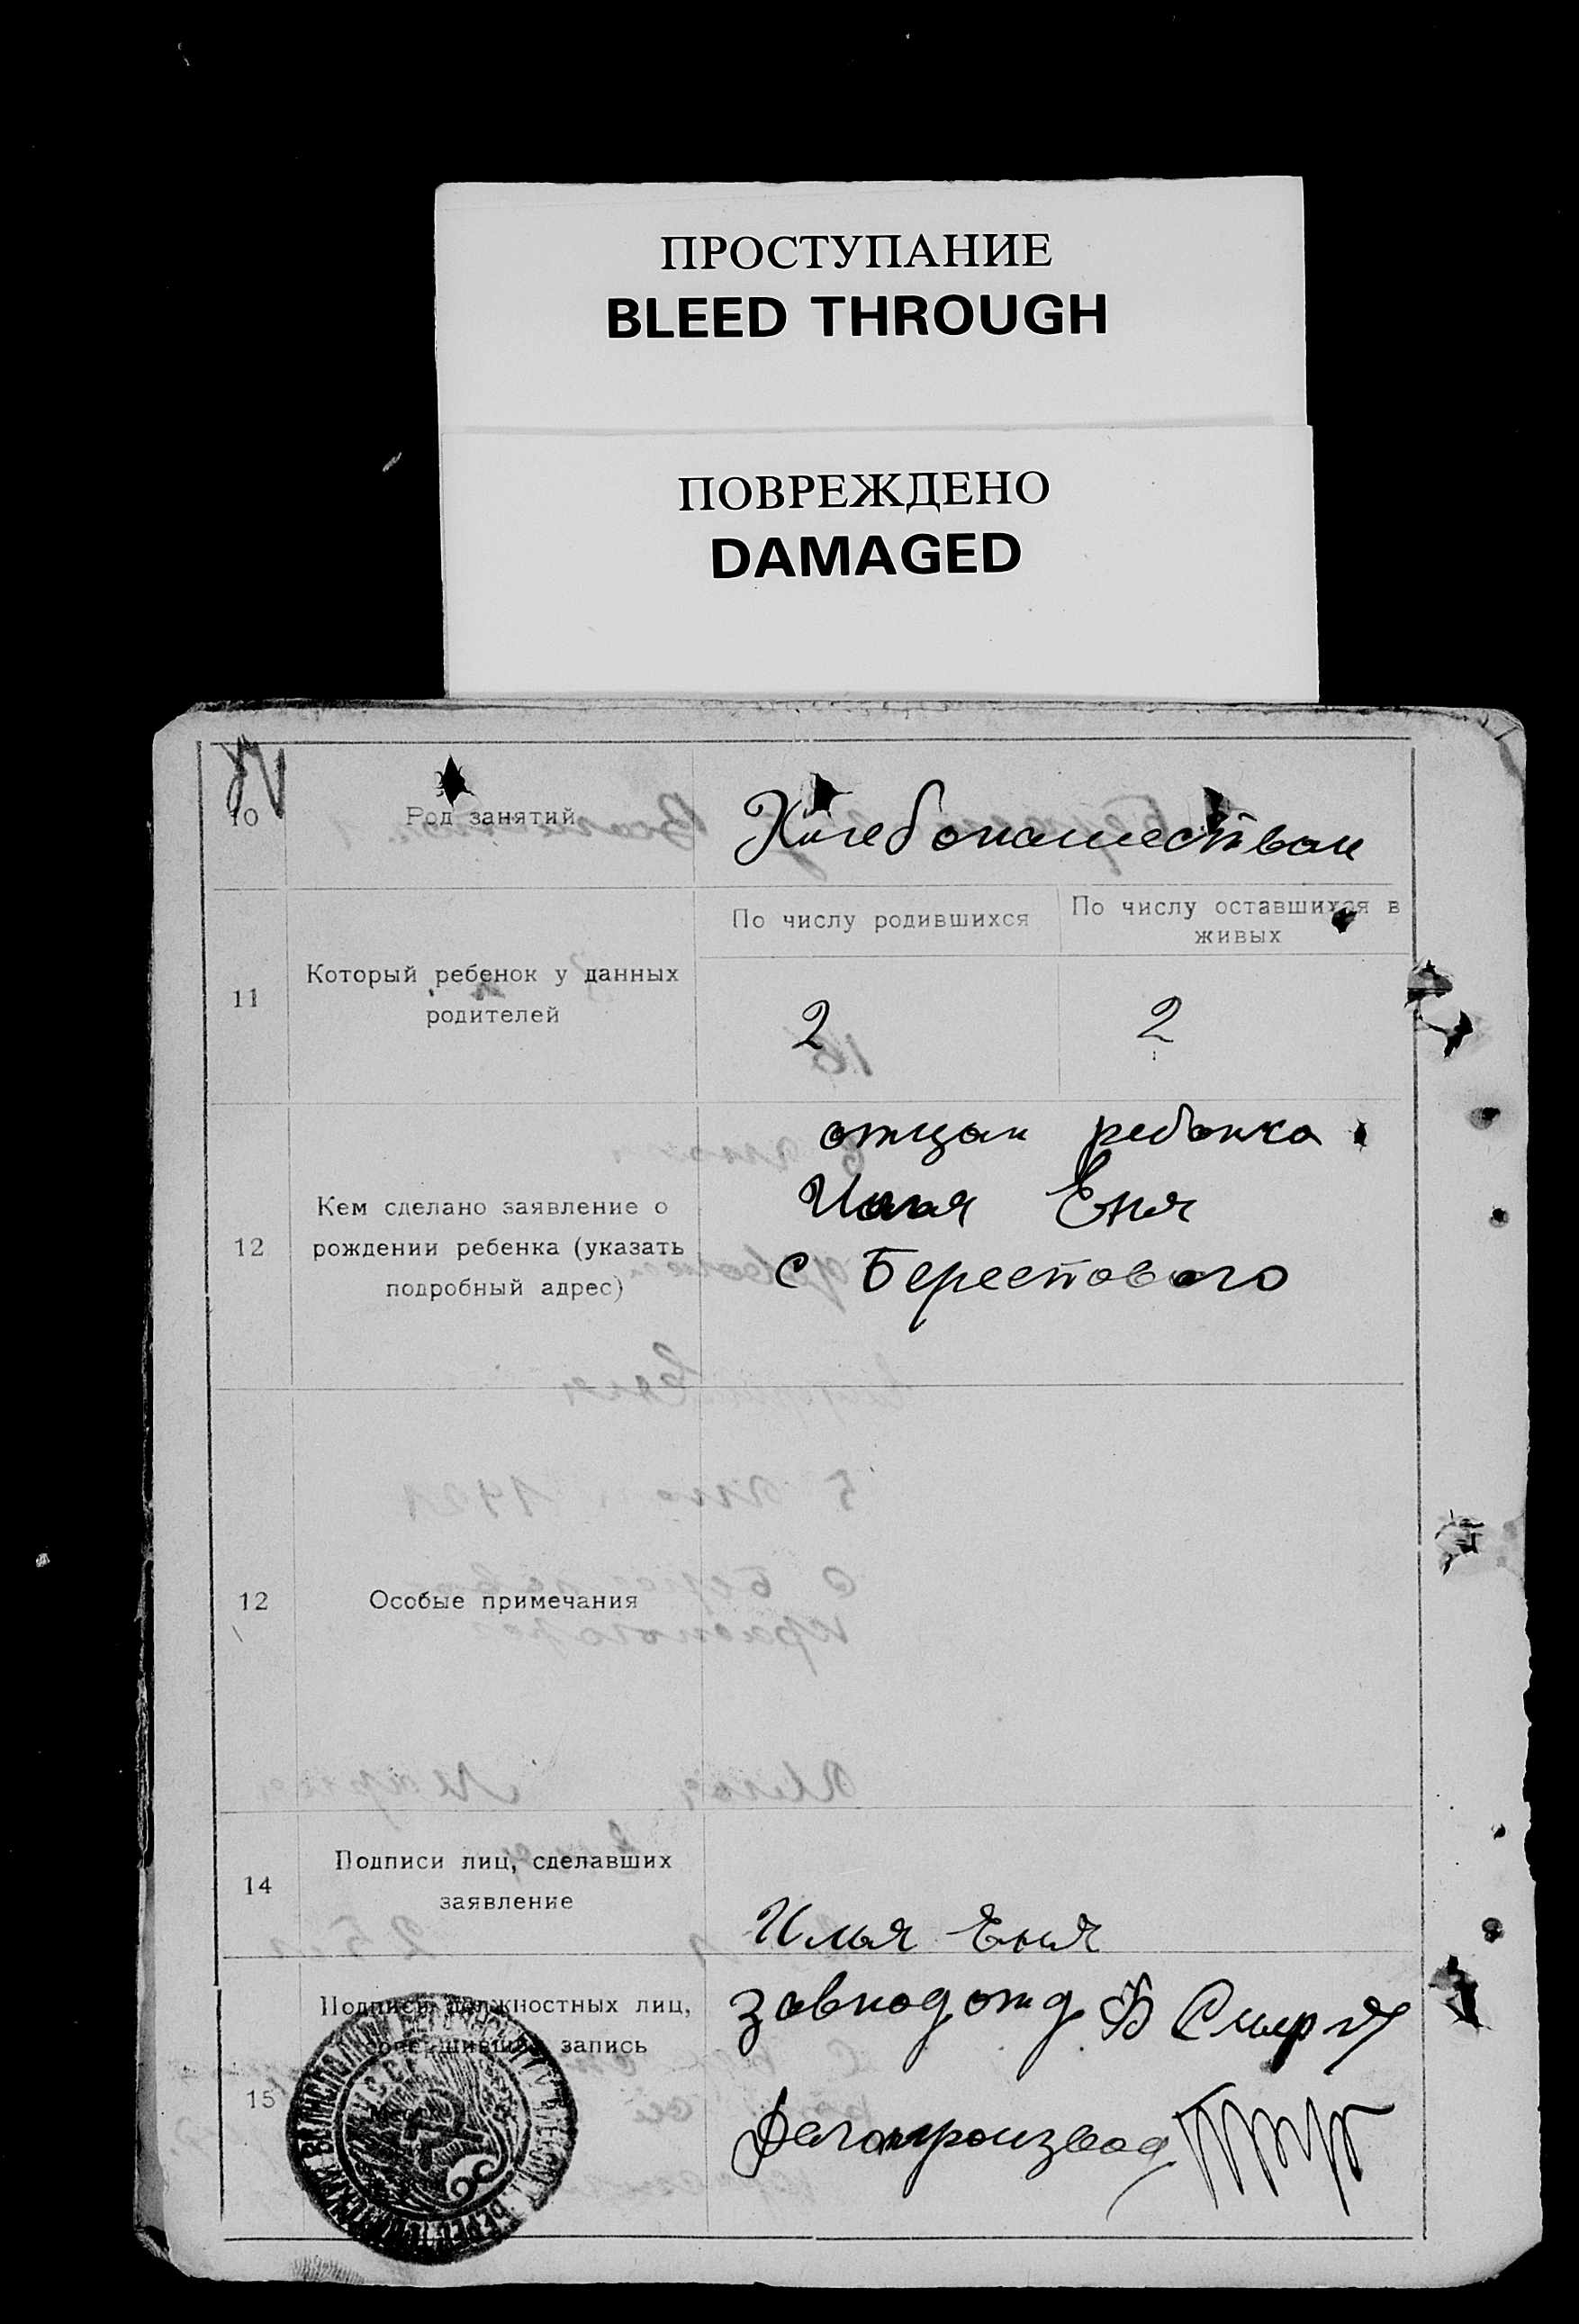 ПРОСТУПАНИЕ
BLEED THROUGH
ПОВРЕЖДЕНО
DAMAGED
10
Род занятий
Хлебопашеством
По числу родившихся
По числу оставшихся в
живых
11
Который ребенок у данных
родителей
2
2
12
Кем сделано заявление о
рождении ребенка (указать
подробный адрес)
отцом ребонка
Илья Еня
с Берестового
12
Особые примечания
14
Подписи лиц, сделавших
заявление
Илья Еня
15
Подписи должностных лиц,
совершивших запись
завподотд
Делопроизвод